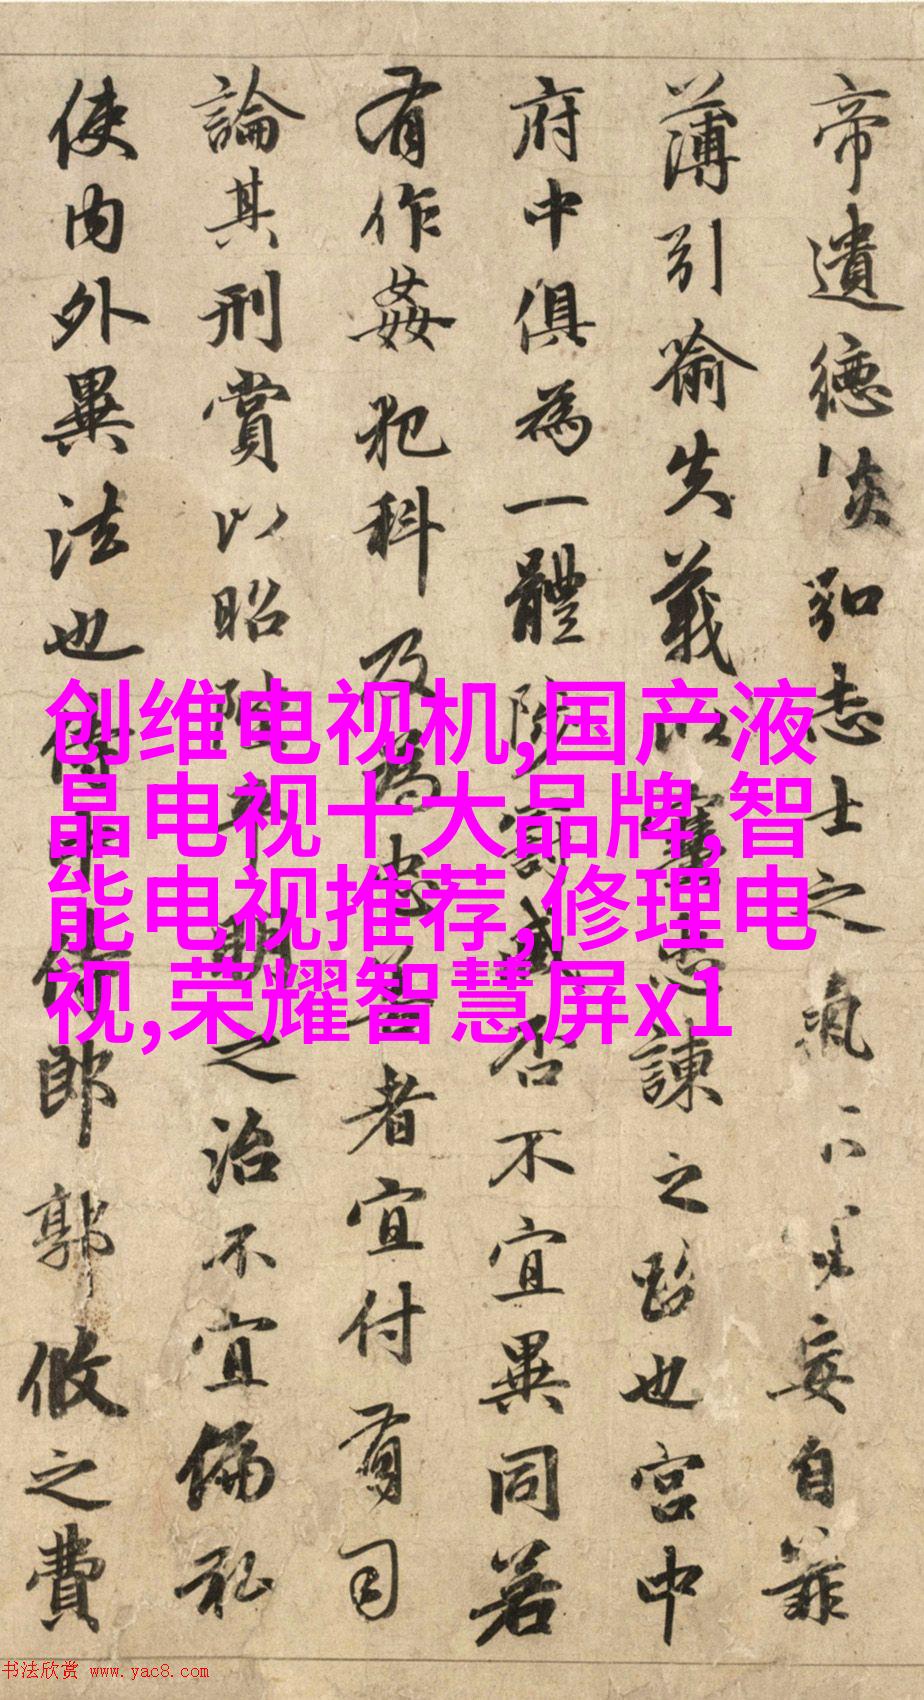 帝遺德恢弘志士之氣不妄自菲
薄引喻失義以塞忠諫之路也宮中
府中俱為一體陟罰臧否不宜異同若
有作姦犯科及為忠善者宜付有司
論其刑賞以昭陛下平明之治不宜偏私
使內外異法也侍中侍郎郭攸之費
创维电视机,国产液
晶电视十大品牌,智
能电视推荐,修理电
视,荣耀智慧屏x1
书法欣赏 www.yac8.com